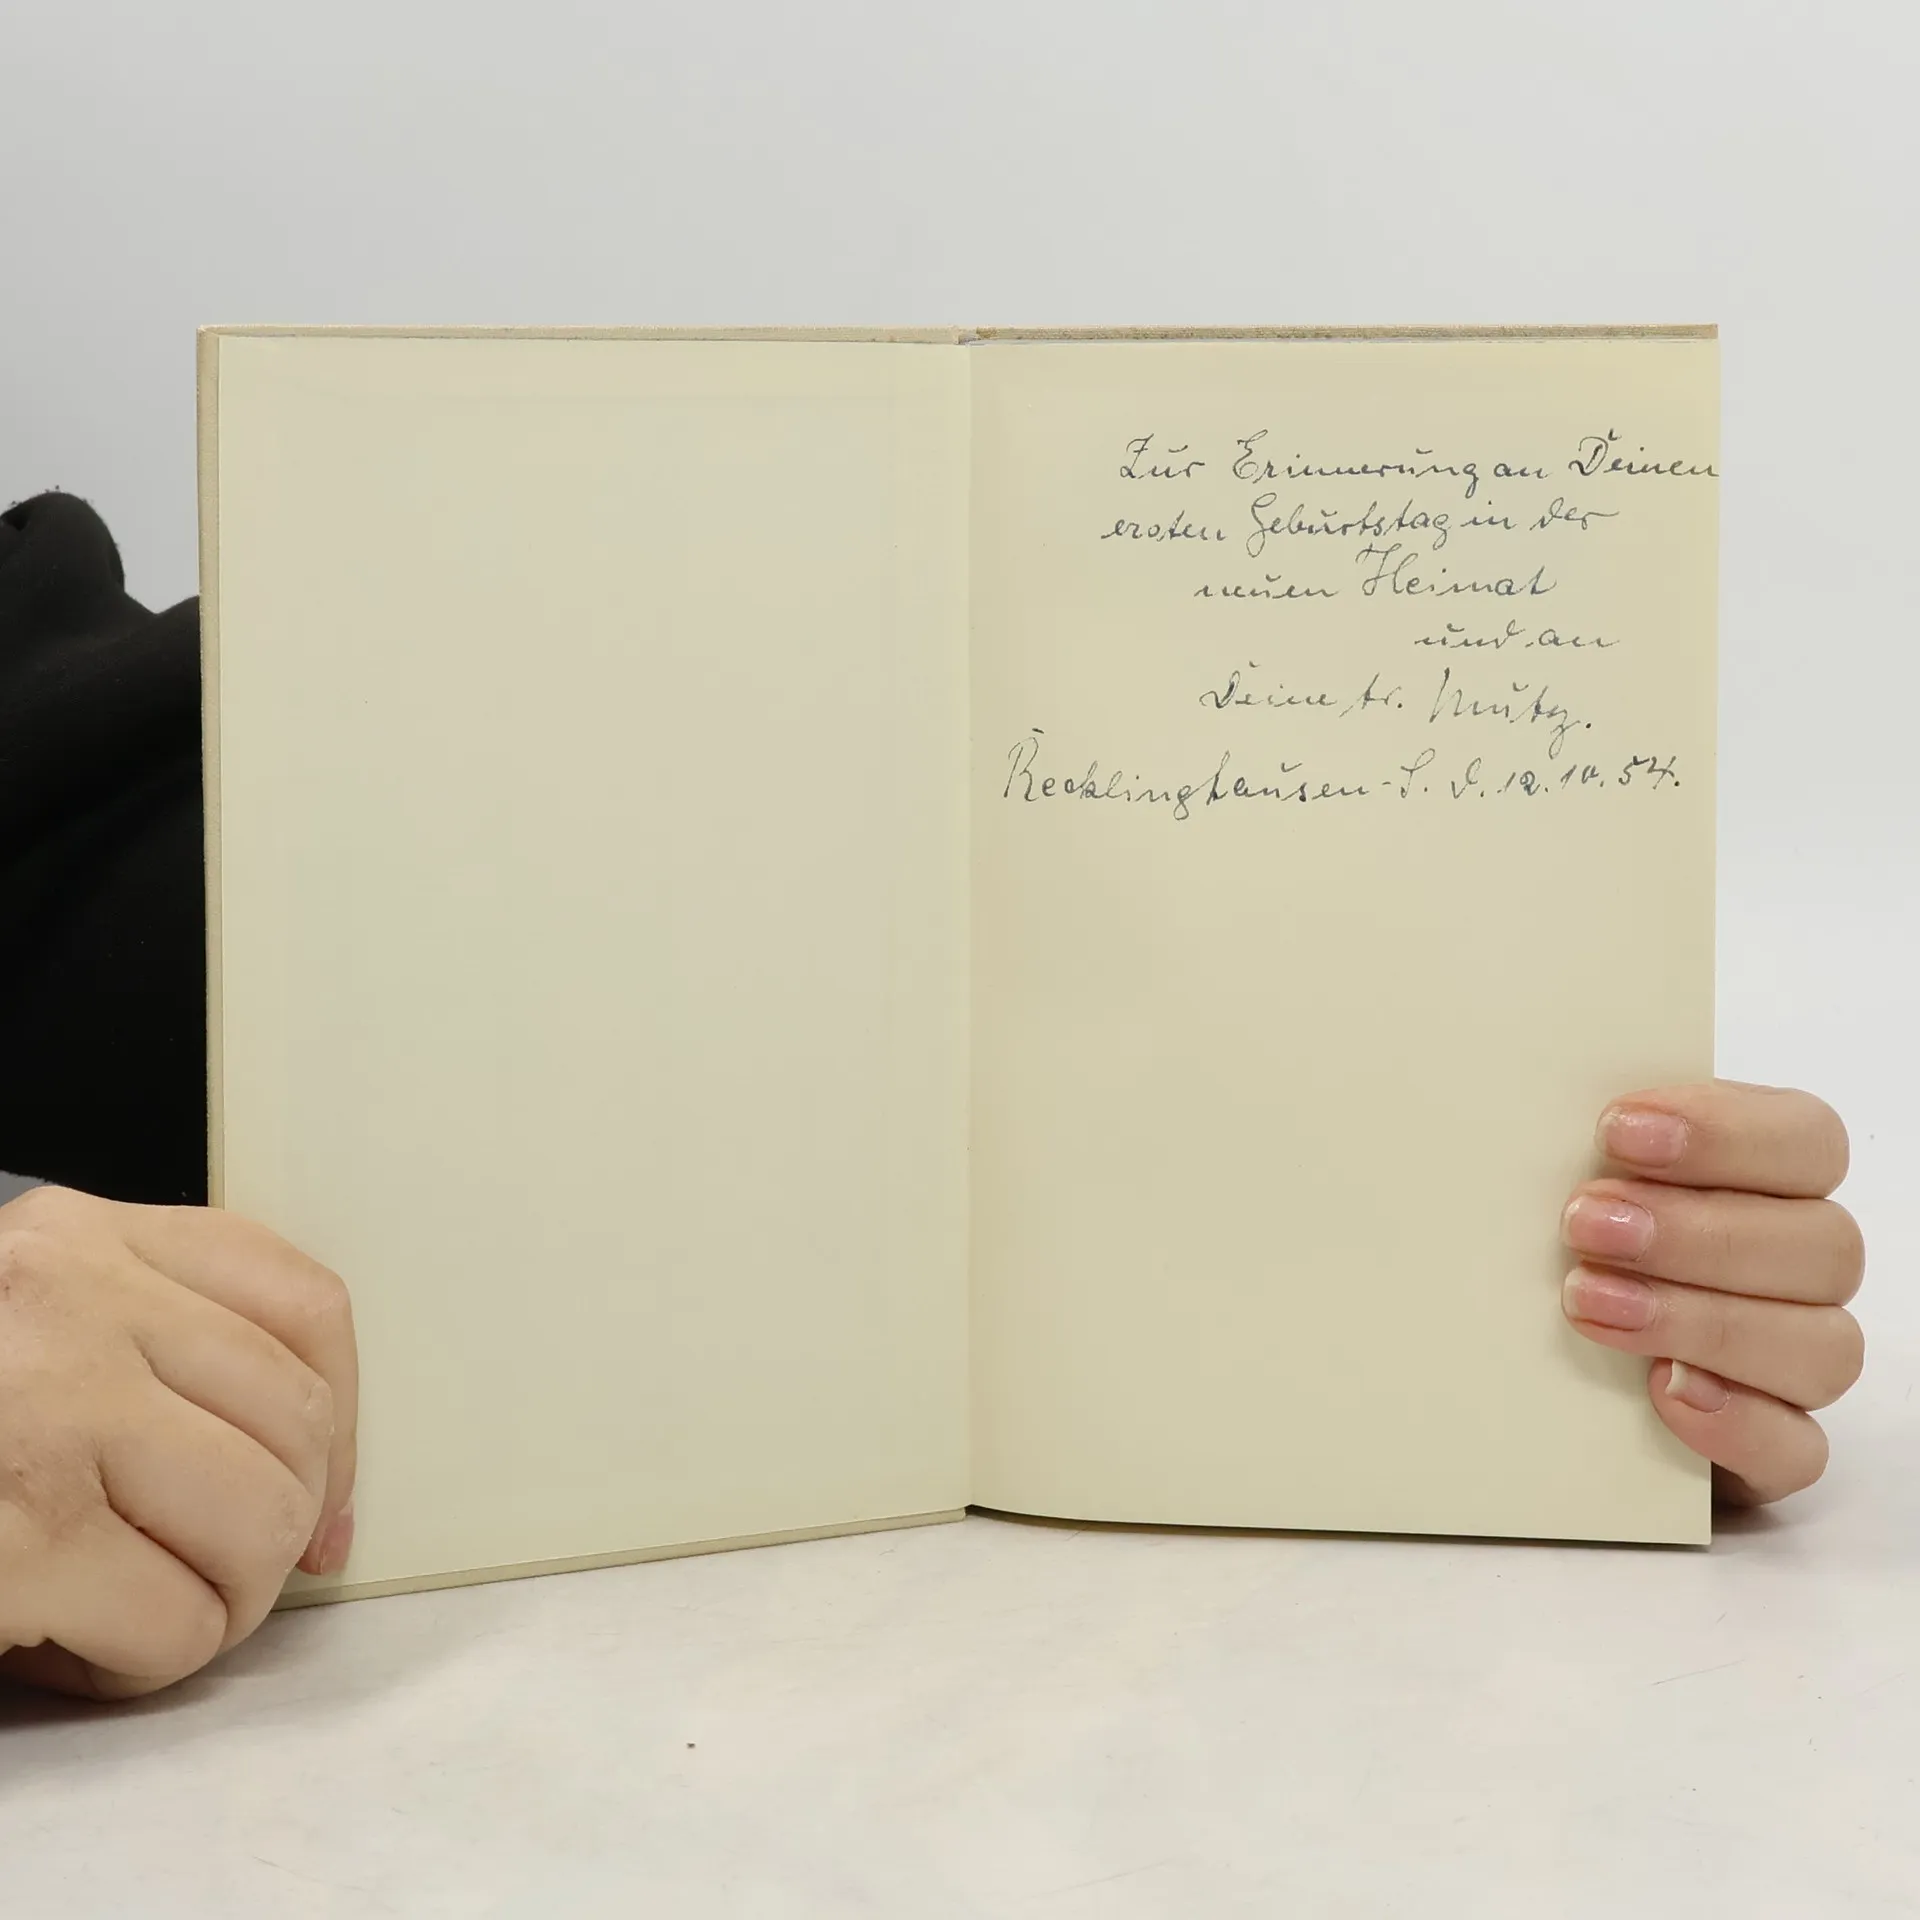 Zur Erinnerung an Deinen
ersten Geburtstag in der
neuen Heimat
und an
Deine tr. Mutz.
Recklinghausen-S. d. 12.10.54.